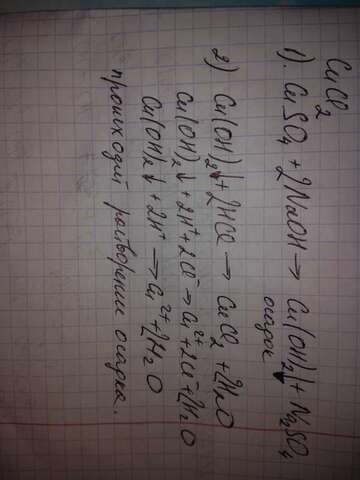 CuCl2
1). CuSO4 + 2NaOH → Cu(OH)2↓ + Na2SO4
осадок
2) Cu(OH)2↓ + 2HCl → CuCl2 + 2H2O
Cu(OH)2↓ + 2H+ + 2Cl- → Cu2+ + 2Cl- + 2H2O
Cu(OH)2↓ + 2H+ → Cu2+ + 2H2O
происходит растворение осадка.